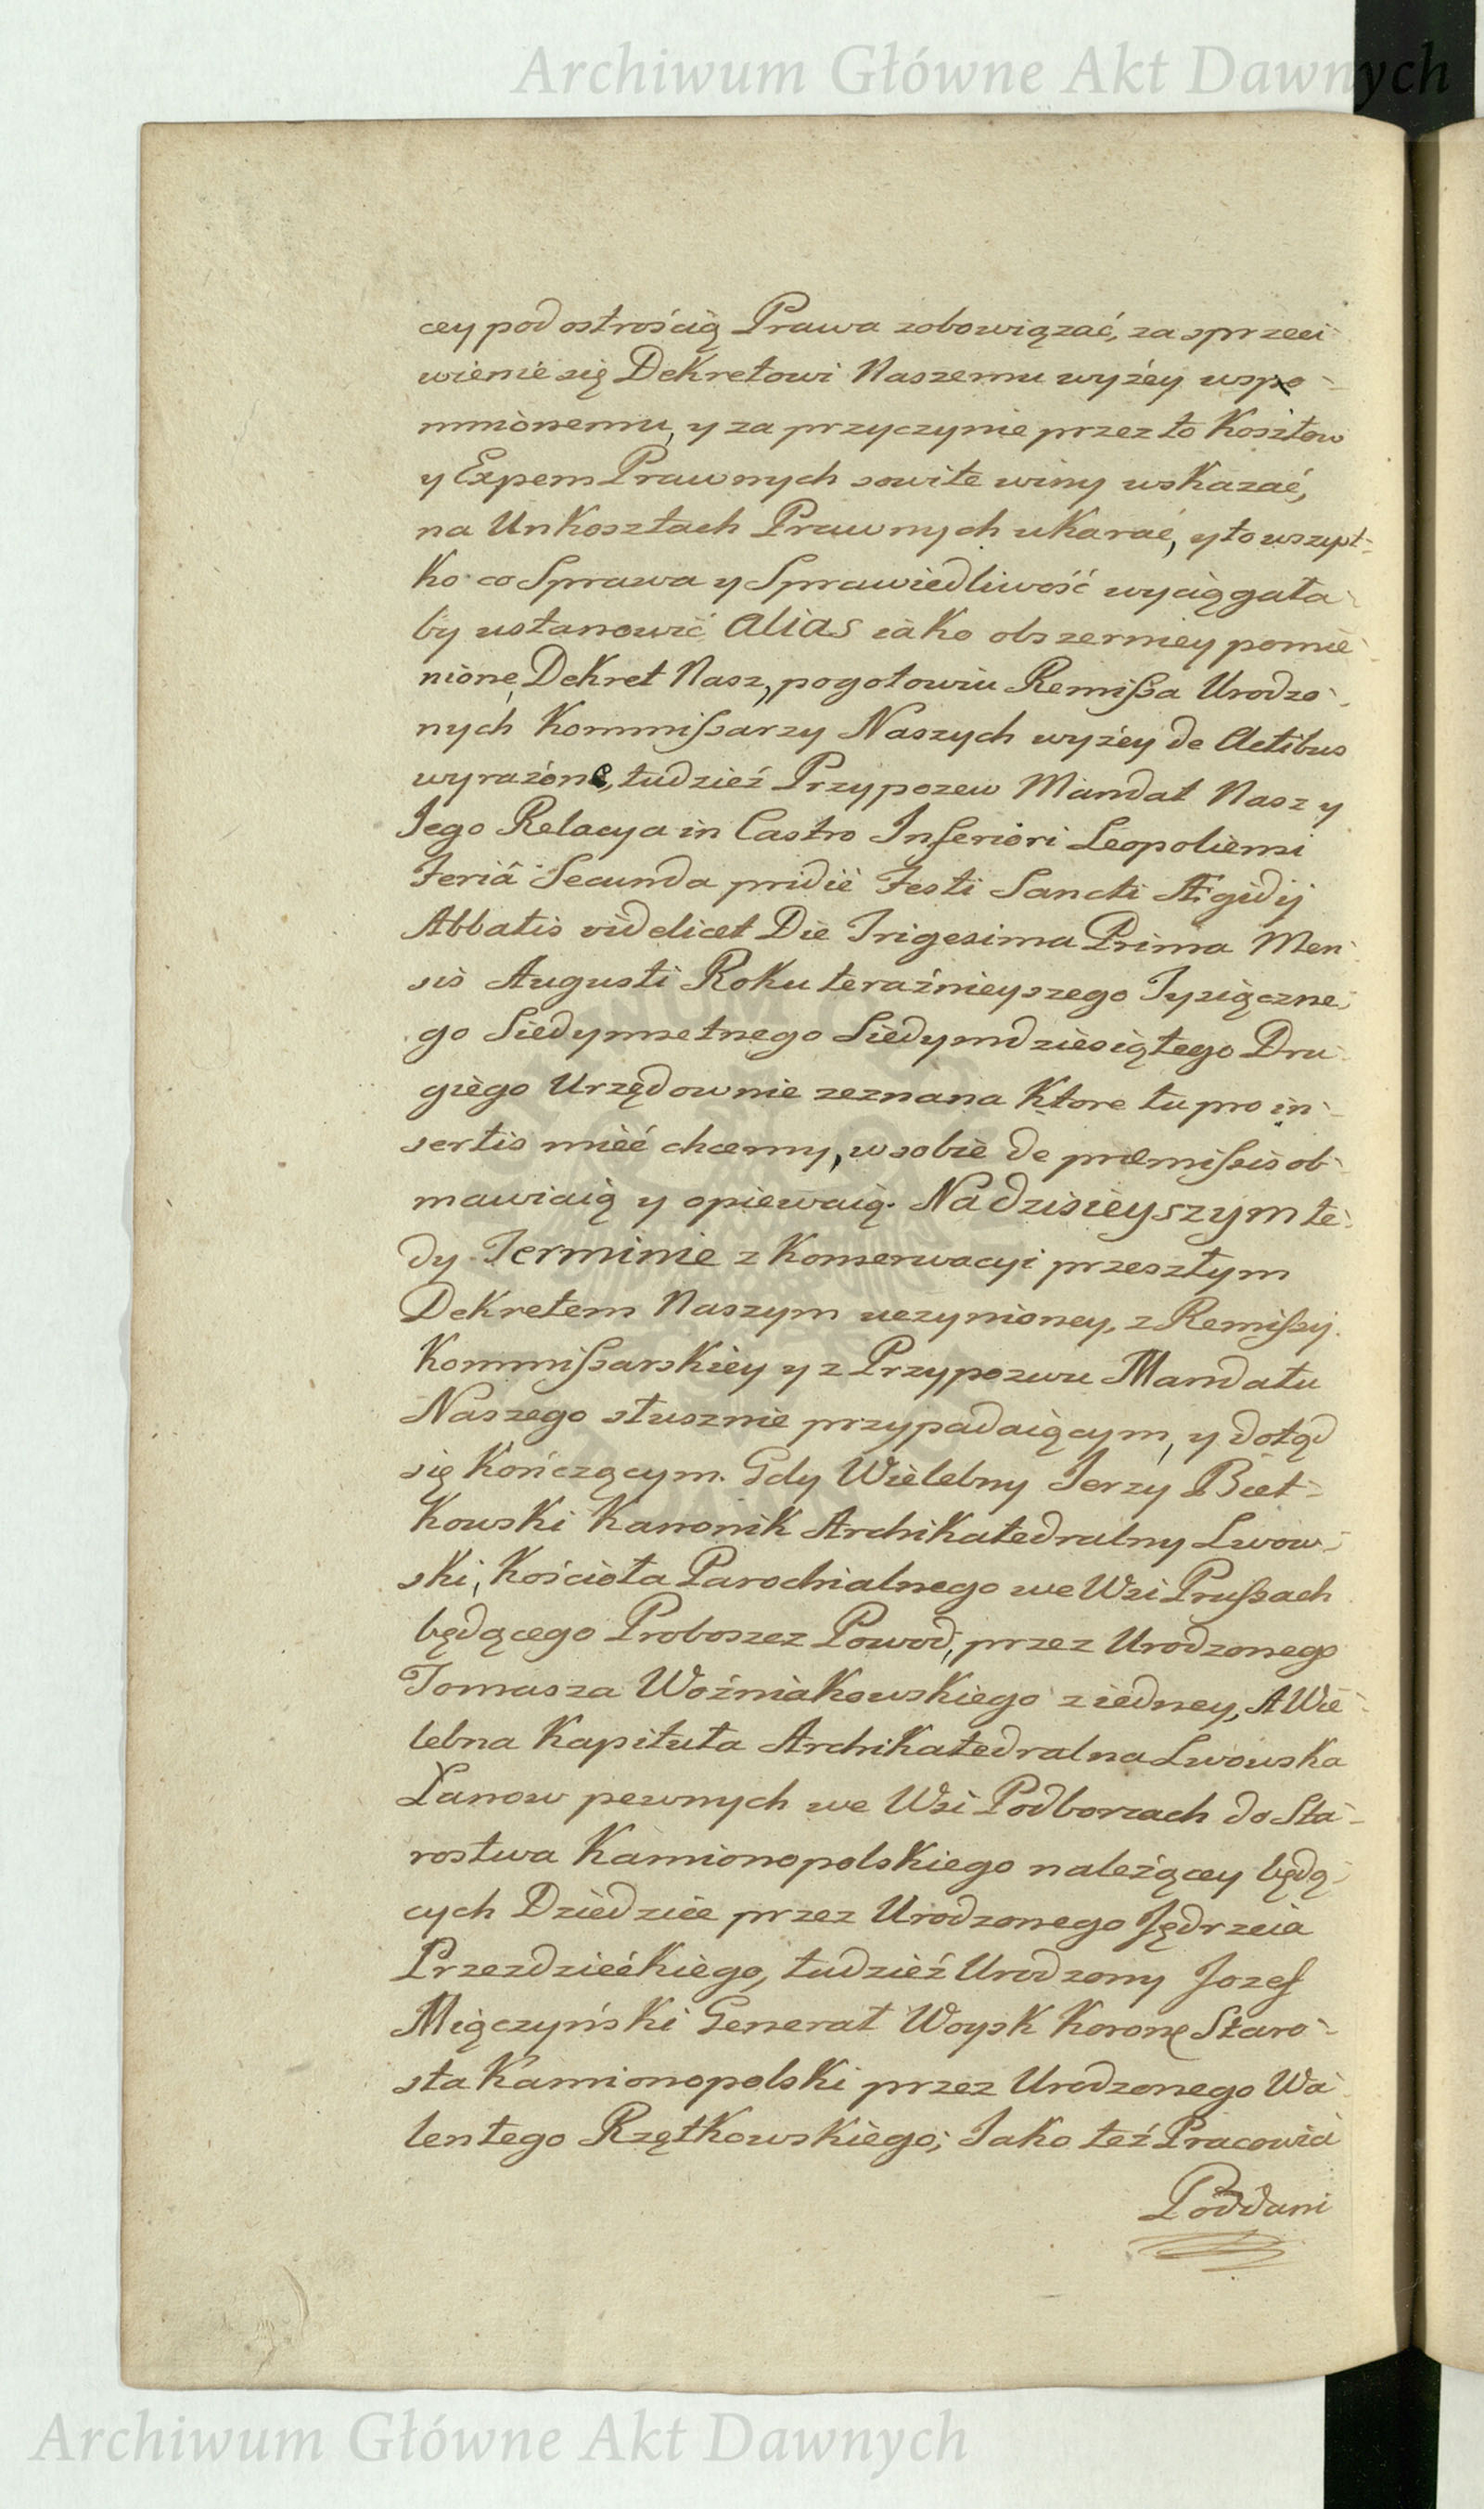 Archiwum Główne Akt Dawnych
cey pod ostrością Prawa zobowiązać, za sprzeci-
wienie się Dekretowi Naszemu wyżey wspo-
mnionemu, y za przyczynie przez to Kosztow
y Expens Prawnych sowite winy wskazać,
na Unkosztach Prawnych ukarać, y to wszyst-
ko co Sprawa y Sprawiedliwość wyciąggała-
by ustanowić alias iako obszerniey pomie-
nione Dekret Nasz, pogotowiu Remißa Urodzo-
nych Kommißarzy Naszych wyżey de Actibus
wyrażone, tudzież Przypozew Mandat Nasz y
Jego Relacya in Castro Inferiori Leopoliensi
Feriâ Secunda pridie Festi Sancti Ægidij
Abbatis videlicet Die Trigesima Prima Men-
sis Augusti Roku teraźnieyszego Tysiączne-
go Siedymsetnego Siedymdziesiątego Dru-
giego Urzędownie zeznana Ktore tu pro in-
sertis mieć chcemy, w sobie de præmißis ob-
mawiaią y opiewaią. Na dzisieyszym te-
dy Terminie z Konserwacyi przeszłym
Dekretem Naszym uczynioney, z Remißy
Kommißarskiey y z Przypozwu Mandatu
Naszego słusznie przypadaiącym, y dotąd
się Kończącym. Gdy Wielebny Jerzy Biet-
kowski Kanonik Archikatedralny Lwow-
ski, Kościoła Parochialnego we Wsi Prußach
będącego Proboszcz Powod, przez Urodzonego
Tomasza Woźniakowskiego z iedney, A Wie-
lebna Kapituła Archikatedralna Lwowska
Łanow pewnych we Wsi Podborcach do Sta-
rostwa Kamionopolskiego należącey będą-
cych Dziedzice przez Urodzonego Jędrzeia
Przezdziećkiego, tudzież Urodzony Jozef
Miączyński Generał Woysk Koronę Staro-
sta Kamionopolski przez Urodzonego Wa-
lentego Rzętkowskiego; Jako też Pracowici
Poddani
Archiwum Główne Akt Dawnych